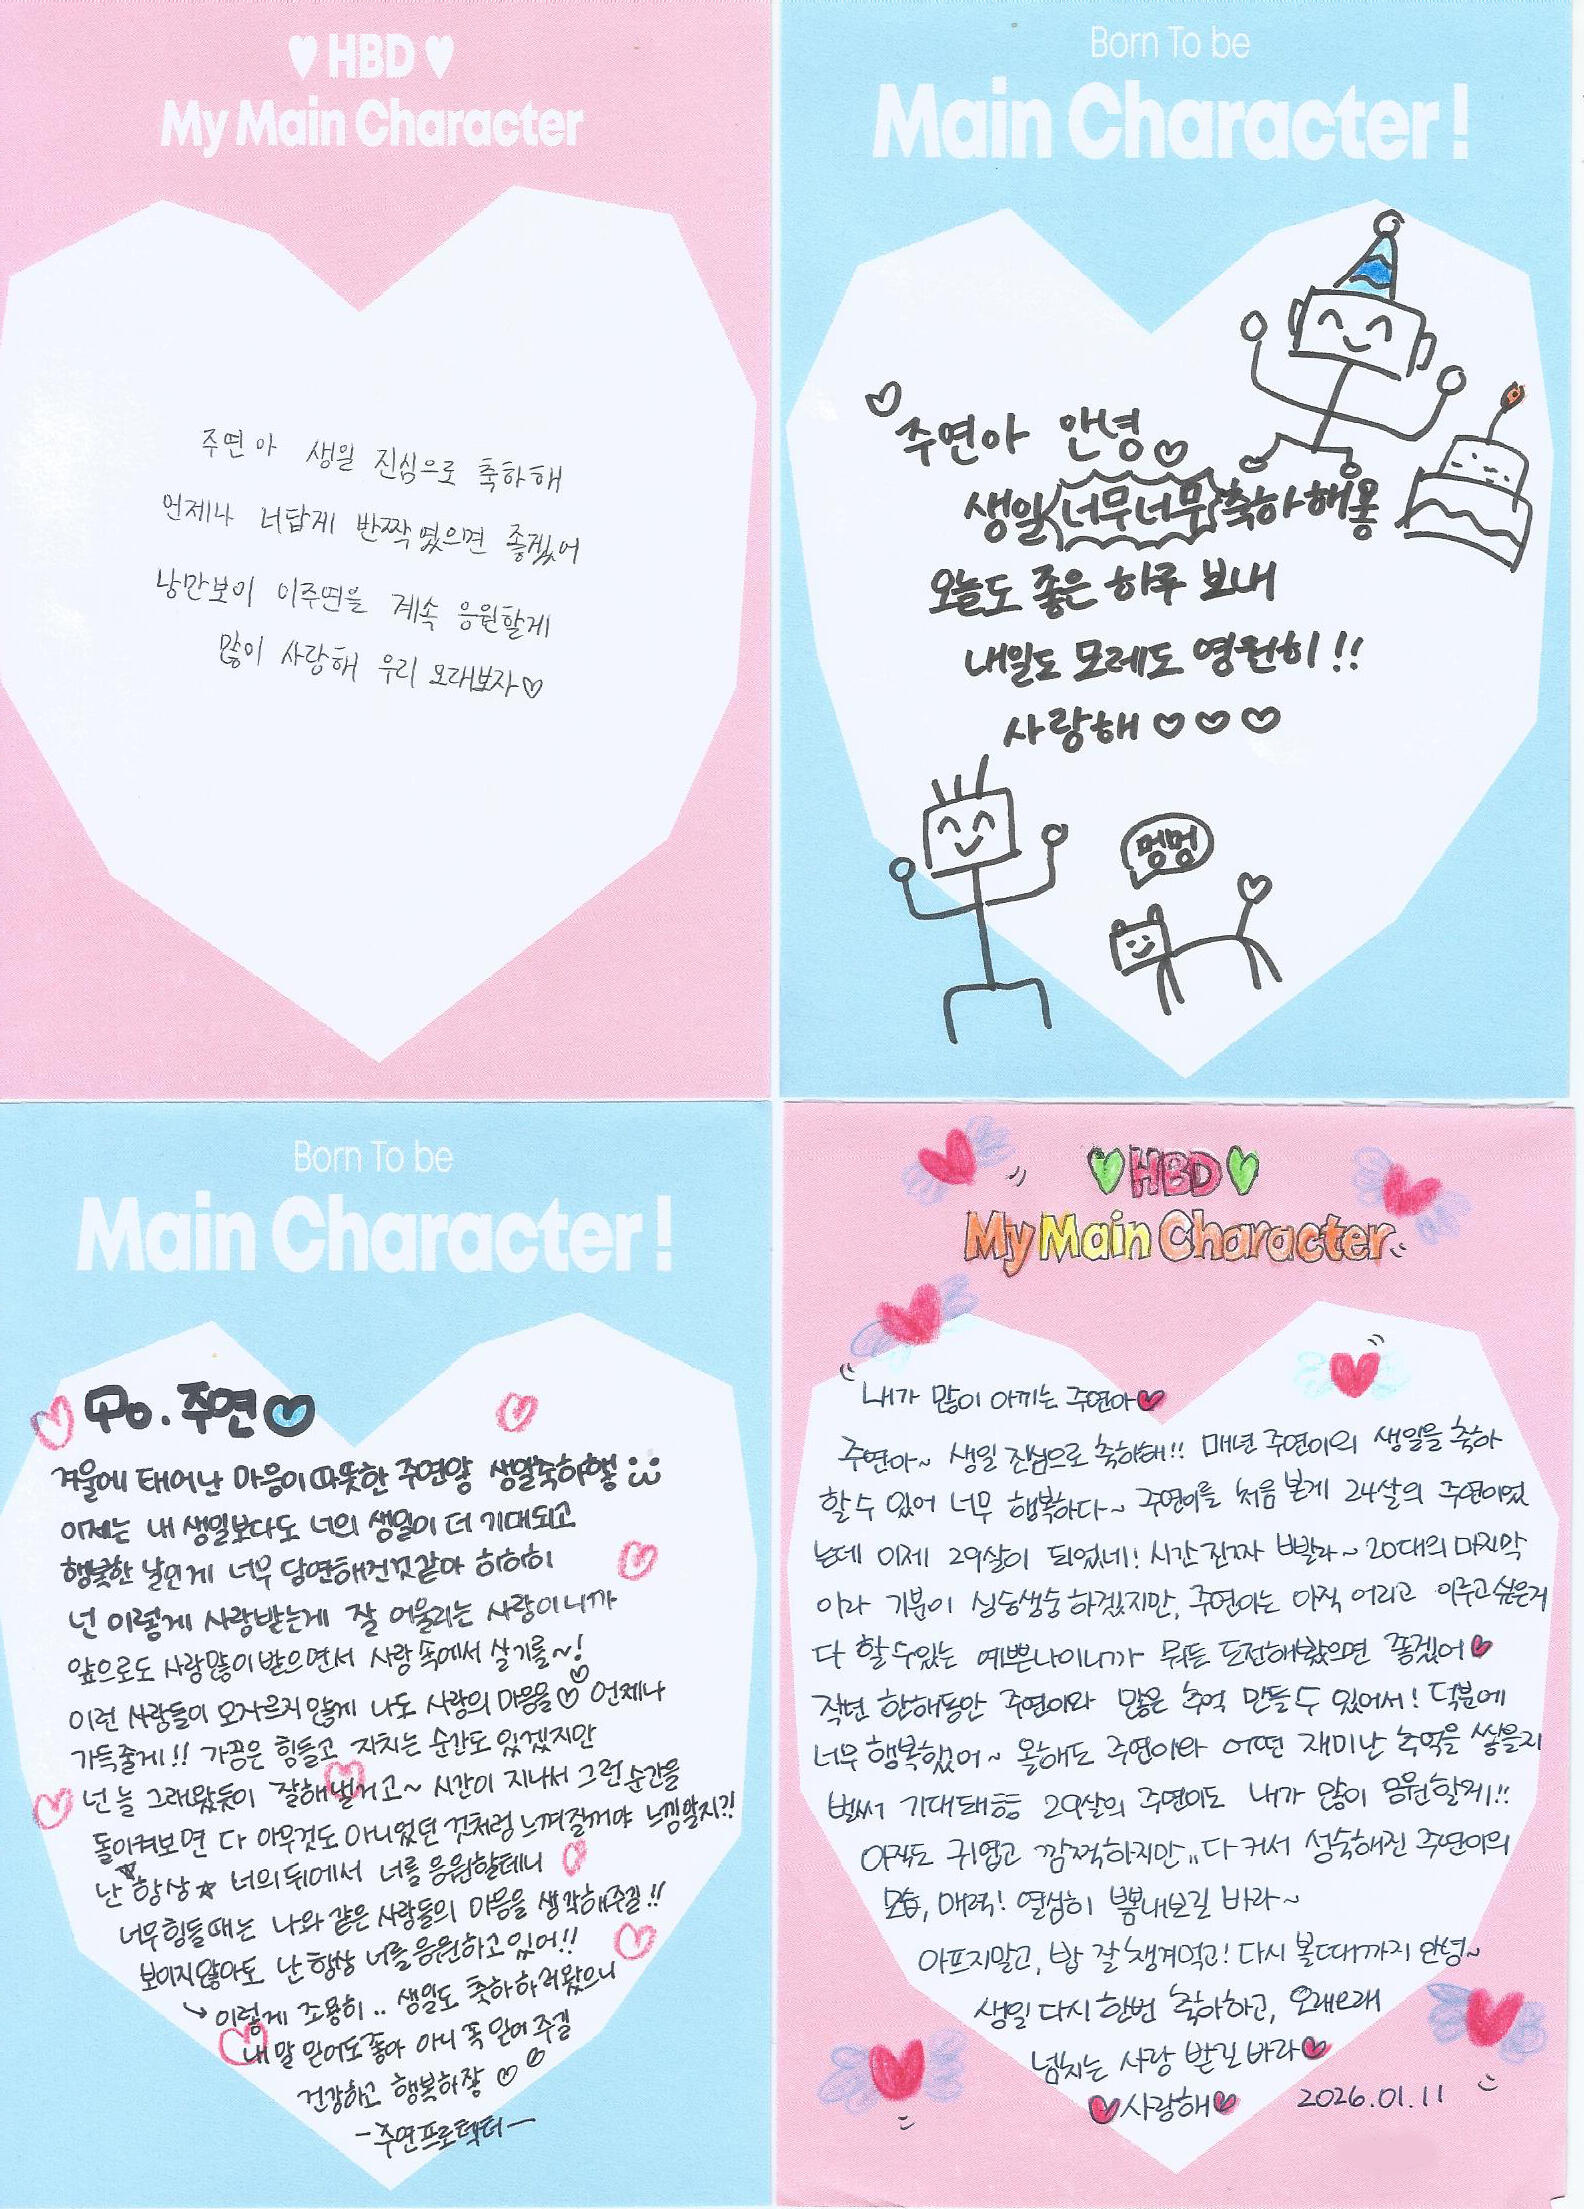 ♥ HBD ♥
My Main Character
주연아 생일 진심으로 축하해
언제나 너답게 반짝였으면 좋겠어
낭만보이 이주연을 계속 응원할게
많이 사랑해 우리 오래보자♡
Born To be
Main Character!
♡주연아 안녕♡
생일 너무너무 축하해용
오늘도 좋은 하루 보내
내일도 모레도 영원히!!
사랑해 ♡♡♡
멍멍
Born To be
Main Character!
To. 주연♡
겨울에 태어난 마음이 따뜻한 주연양 생일축하행
이제는 내 생일보다도 너의 생일이 더 기대되고
행복한 날인게 너무 당연해진것같아 히히히
넌 이렇게 사랑받는게 잘 어울리는 사람이니까
앞으로도 사랑많이 받으면서 사랑 속에서 살기를~!
이런 사랑들이 모자르지 않게 나도 사랑의 마음을♡♡ 언제나
가득줄게!! 가끔은 힘들고 지치는 순간도 있겠지만
넌 늘 그래왔듯이 잘해낼거고~ 시간이 지나서 그런 순간을
돌이켜보면 다 아무것도 아니었던 것처럼 느껴질꺼야 느낌알지?!
난 항상★ 너의 뒤에서 너를 응원할테니
너무 힘들때는 나와 같은 사람들의 마음을 생각해주길!!
보이지 않아도 난 항상 너를 응원하고 있어!!
↳ 이렇게 조용히.. 생일도 축하하러왔으니
내 말 믿어도 좋아 아니 꼭 믿어 주길
건강하고 행복하장 ♡♡
-주연프로텍터-
♥HBD♥
My Main Character
내가 많이 아끼는 주연아♥
주연아~ 생일 진심으로 축하해!! 매년 주연이의 생일을 축하
할 수 있어 너무 행복하다~ 주연이를 처음 본게 24살의 주연이었
는데 이제 29살이 되었네! 시간 진짜 빠르다~ 20대의 마지막
이라 기분이 싱숭생숭 하겠지만, 주연이는 아직 어리고 이루고싶은게
다 할 수 있는 예쁜나이니까 뭐든 도전해봤으면 좋겠어♥
작년 한해동안 주연이와 많은 추억 만들 수 있어서! 덕분에
너무 행복했어~ 올해도 주연이와 어떤 재미난 추억을 쌓을지
벌써 기대돼 29살의 주연이도 내가 많이 응원할게!!
아직도 귀엽고 깜찍하지만.. 다 커서 성숙해진 주연이의
모습, 매력! 열심히 뽐내보길 바라~
아프지말고, 밥 잘 챙겨먹고! 다시 볼때까지 안녕~
생일 다시 한번 축하하고, 오래오래
넘치는 사랑 받길 바라♥
♥사랑해♥ 2026.01.11